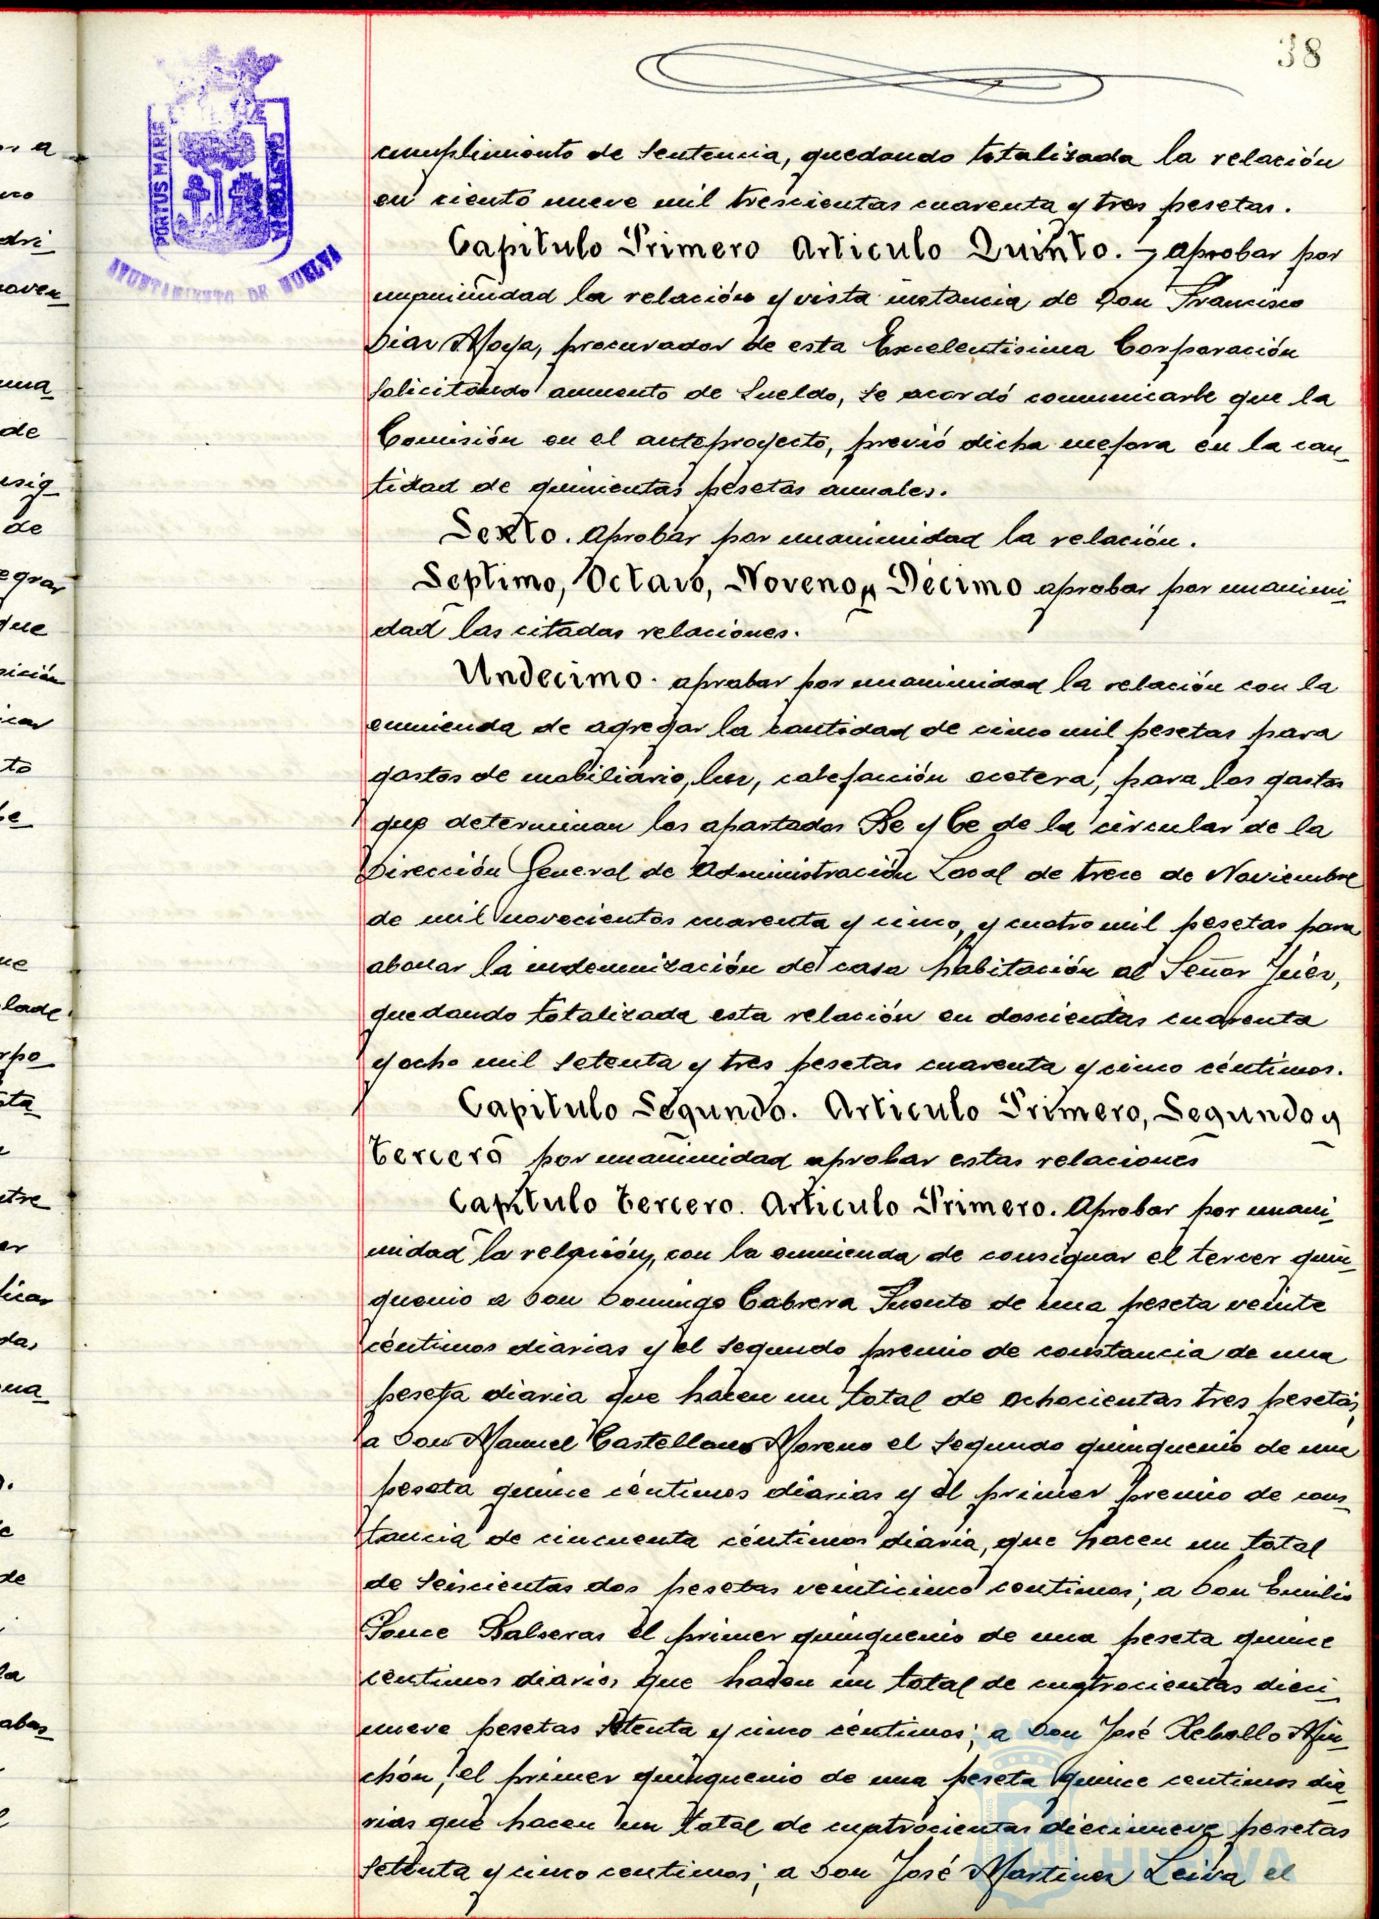 38
PORTUS MARIS
AYUNTAMIENTO DE HUELVA
cumplimiento de sentencia, quedando totalizada la relación
en ciento nueve mil trescientas cuarenta y tres pesetas.
Capitulo Primero Articulo Quinto. aprobar por
unanimidad la relación y vista instancia de Don Francisco
Diaz Moya, procurador de esta Excelentisima Corporación
solicitando aumento de sueldo, se acordó comunicarle que la
Comisión en el anteproyecto, previó dicha mejora en la can-
tidad de quinientas pesetas anuales.
Sexto. Aprobar por unanimidad la relación.
Septimo, Octavo, Noveno y Décimo aprobar por unanimi-
dad las citadas relaciones.
Undecimo. aprobar por unanimidad la relación con la
enmienda de agregar la cantidad de cinco mil pesetas para
gastos de mobiliario, luz, calefacción ecetera, para los gastos
que determinan los apartados Be y Ce de la circular de la
Dirección General de Administración Local de trece de Noviembre
de mil novecientos cuarenta y cinco, y cuatro mil pesetas para
abonar la indemnización de casa habitación al Señor Juéz,
quedando totalizada esta relación en doscientas cuarenta
y ocho mil setenta y tres pesetas cuarenta y cinco céntimos.
Capitulo Segundo. Articulo Primero, Segundo y
Tercero por unanimidad aprobar estas relaciones
Capitulo Tercero. Articulo Primero. Aprobar por unani-
midad la relación, con la enmienda de consignar el tercer quin-
quenio a Don Domingo Cabrera Puente de una peseta veinte
céntimos diarias y el segundo premio de constancia de una
peseta diaria que hacen un total de ochocientas tres pesetas,
a Don Manuel Castellano Moreno el segundo quinquenio de una
peseta quince céntimos diarias y el primer premio de cons-
tancia de cincuenta céntimos diaria, que hacen un total
de seiscientas dos pesetas veinticinco centimos; a Don Emilio
Ponce Balseras el primer quinquenio de una peseta quince
centimos diarios que hacen un total de cuatrocientas dieci-
nueve pesetas setenta y cinco céntimos; a Don José Rebollo Min-
chón, el primer quinquenio de una peseta quince centimos dia-
rias que hacen un total de cuatrocientas diecinueve pesetas
setenta y cinco centimos; a Don José Martinez Leiva el
HUELVA